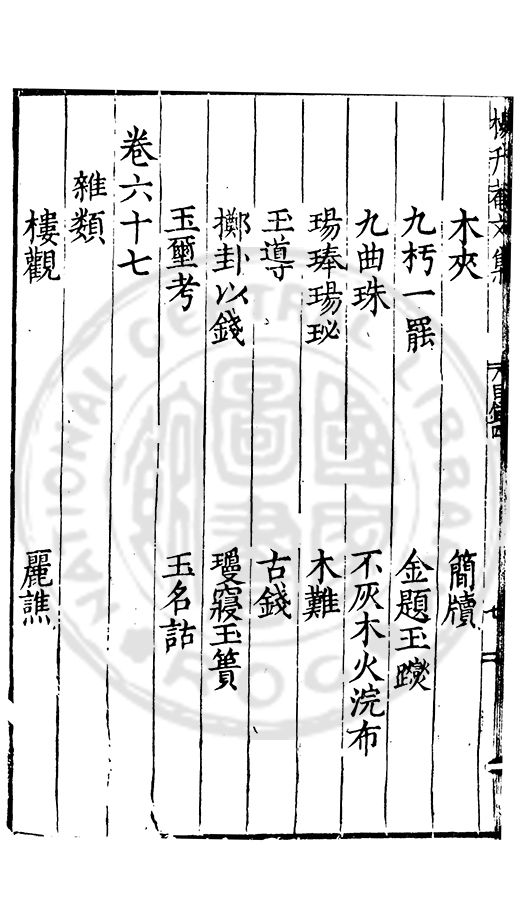 木夾 簡牘
九枵一罷 金題玉躞
九曲珠 不灰木火浣布
瑒琫瑒珌 木難
玉導 古錢
擲卦以錢 瓊窽玉簣
玉璽考 玉名詁
卷六十七
雜類
樓觀 麗譙
NATIONAL CENTRAL LIBRARY